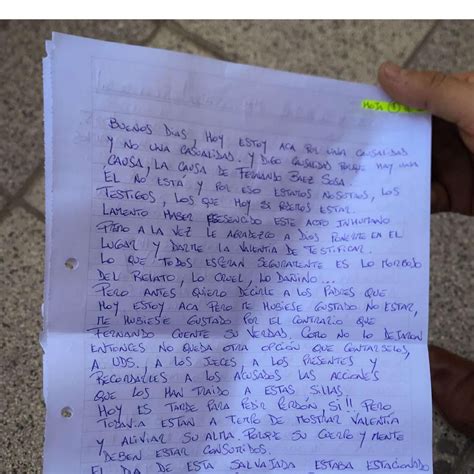 HOJA ①
BUENOS DIAS, HOY ESTOY ACA POR UNA CAUSALIDAD
Y NO UNA CASUALIDAD. Y DIGO CAUSALIDAD PORQUE HAY UNA
CAUSA, LA CAUSA DE FERNANDO BAEZ SOSA.
EL NO ESTA Y POR ESO ESTAMOS NOSOTROS, LOS
TESTIGOS, LOS QUE HOY SI PODEMOS ESTAR.
LAMENTO HABER PRESENCIADO ESTE ACTO INHUMANO
PERO A LA VEZ LE AGRADEZCO A DIOS PONERME EN EL
LUGAR Y DARME LA VALENTIA DE TESTIFICAR.
LO QUE TODOS ESPERAN SEGURAMENTE ES LO MORBOSO
DEL RELATO, LO CRUEL, LO DAÑINO...
PERO ANTES QUIERO DECIRLE A LOS PADRES QUE
HOY ESTOY ACA PERO ME HUBIESE GUSTADO NO ESTAR,
ME HUBIESE GUSTADO POR EL CONTRARIO QUE
FERNANDO CUENTE SU VERDAD, COMO NO LO DEJARON
ENTONCES NO QUEDA OTRA OPCIÓN QUE CONTARSELOS,
A UDS., A LOS JUECES A LOS PRESENTES Y
RECORDARLES A LOS ACUSADOS LAS ACCIONES
QUE LOS HAN TRAIDO A ESTAS SILLAS.
HOY ES TARDE PARA PEDIR PERDÓN, SI!! PERO
TODAVIA ESTAN A TIEMPO DE MOSTRAR VALENTÍA
Y ALIVIAR SU ALMA PORQUE SU CUERPO Y MENTE
DEBEN ESTAR CONSUMIDOS.
EL DIA DE ESTA SALVAJADA ESTABA ESTACIONADO